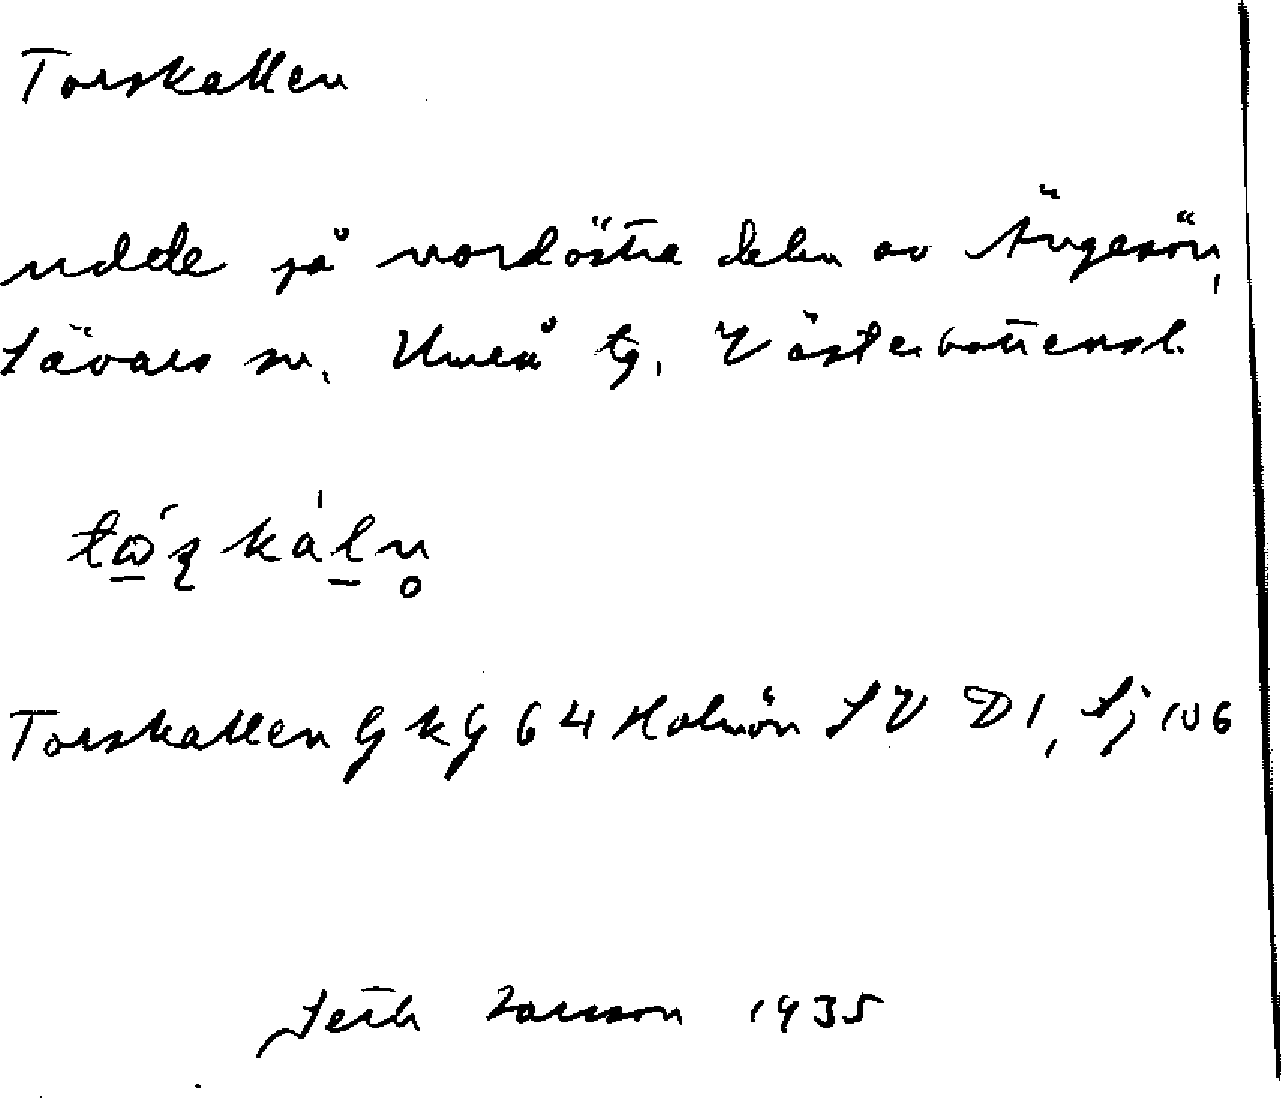 Torskallen
udde på nordöstra delen av Ängesön,
Sävars sn. Umeå tg. Västerbottensl.
Torskallen GKG 64 Holmön SV D1, Sj 106
Seth Larsson 1935